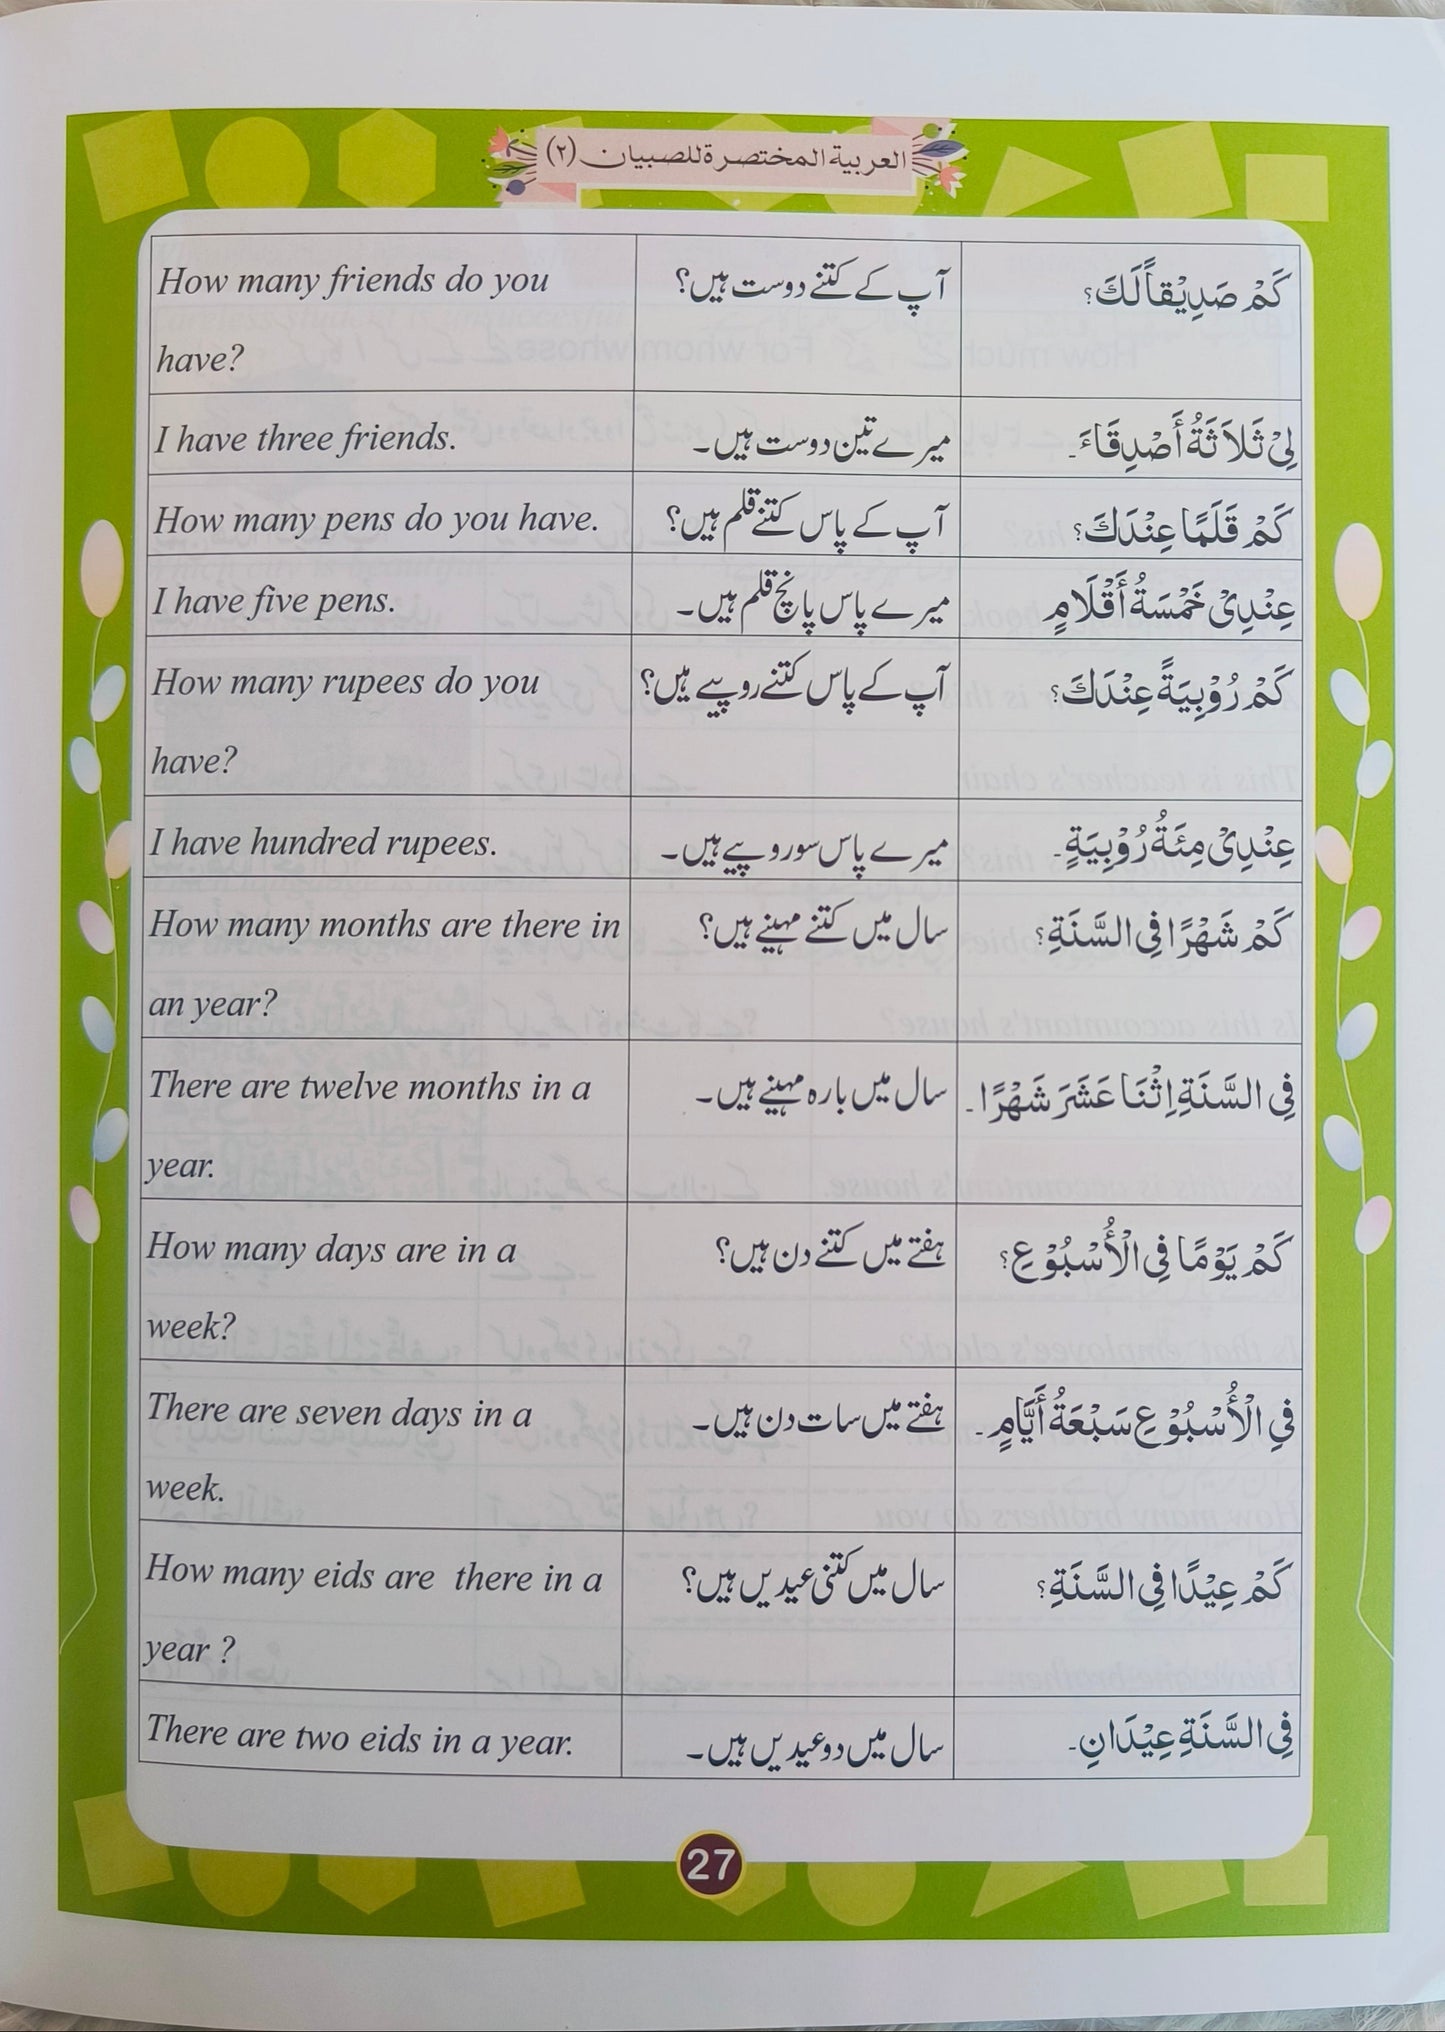 العربية المختصرة للصبيان (٢)
كَمْ صَدِيْقاً لَكَ؟
آپ کے کتنے دوست ہیں؟
How many friends do you
have?
لِیْ ثَلاَثَةُ أَصْدِقَاءَ۔
میرے تین دوست ہیں۔
I have three friends.
كَمْ قَلَمًا عِنْدَكَ؟
آپ کے پاس کتنے قلم ہیں؟
How many pens do you have.
عِنْدِیْ خَمْسَةُ أَقْلَامٍ
میرے پاس پانچ قلم ہیں۔
I have five pens.
كَمْ رُوْبِيَةً عِنْدَكَ؟
آپ کے پاس کتنے روپیے ہیں؟
How many rupees do you
have?
عِنْدِیْ مِئَةُ رُوْبِيَةٍ۔
میرے پاس سو روپیے ہیں۔
I have hundred rupees.
كَمْ شَهْرًا فِی السَّنَةِ؟
سال میں کتنے مہینے ہیں؟
How many months are there in
an year?
فِی السَّنَةِ اِثْنَا عَشَرَ شَهْرًا۔
سال میں بارہ مہینے ہیں۔
There are twelve months in a
year.
كَمْ يَوْمًا فِی الْأُسْبُوْعِ؟
ہفتے میں کتنے دن ہیں؟
How many days are in a
week?
فِی الْأُسْبُوْعِ سَبْعَةُ أَيَّامٍ۔
ہفتے میں سات دن ہیں۔
There are seven days in a
week.
كَمْ عِيْدًا فِی السَّنَةِ؟
سال میں کتنی عیدیں ہیں؟
How many eids are there in a
year ?
فِی السَّنَةِ عِيْدَانِ۔
سال میں دو عیدیں ہیں۔
There are two eids in a year.
27